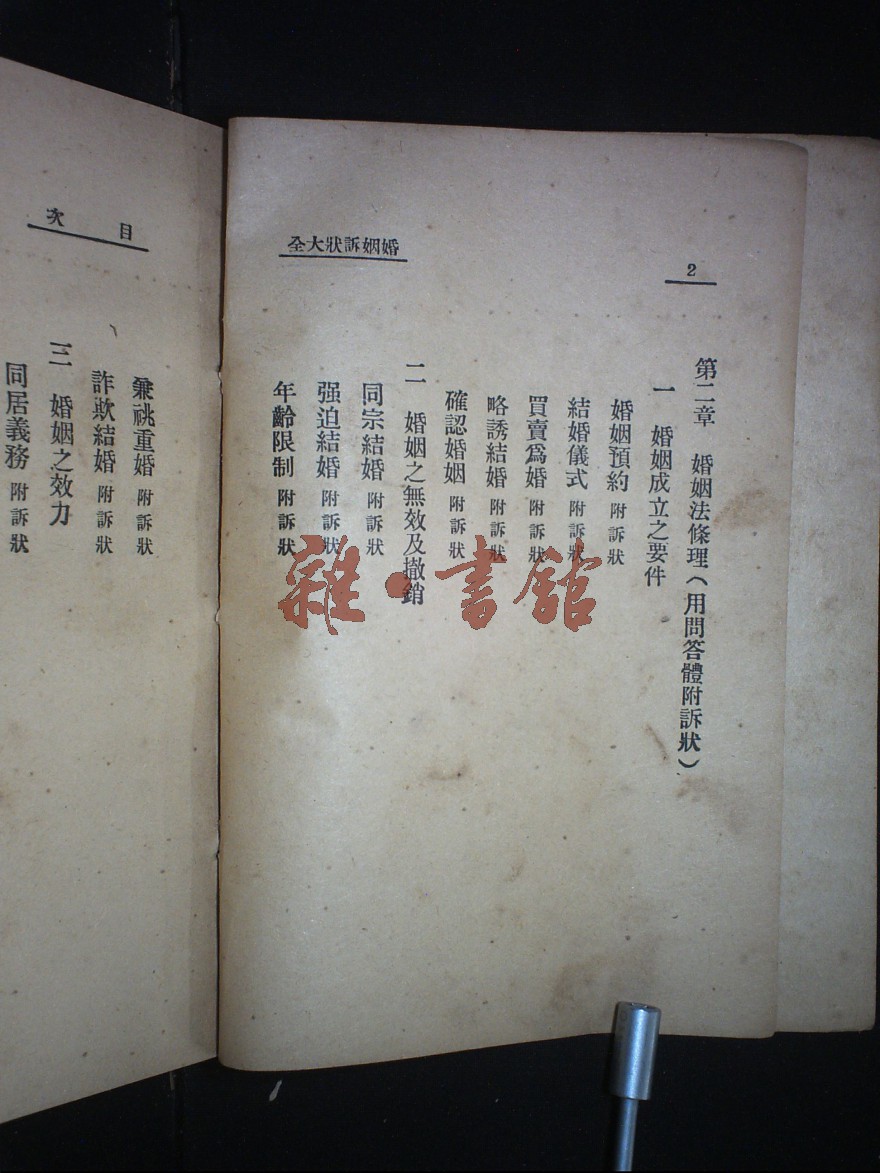 全大狀訴姻婚
2
第二章　婚姻法條理（用問答體附訴狀）
一　婚姻成立之要件
婚姻預約 附訴狀
結婚儀式 附訴狀
買賣爲婚 附訴狀
略誘結婚 附訴狀
確認婚姻 附訴狀
二　婚姻之無效及撤銷
同宗結婚 附訴狀
强迫結婚 附訴狀
年齡限制 附訴狀
次目
兼祧重婚 附訴狀
詐欺結婚 附訴狀
三　婚姻之效力
同居義務 附訴狀
雜·書館